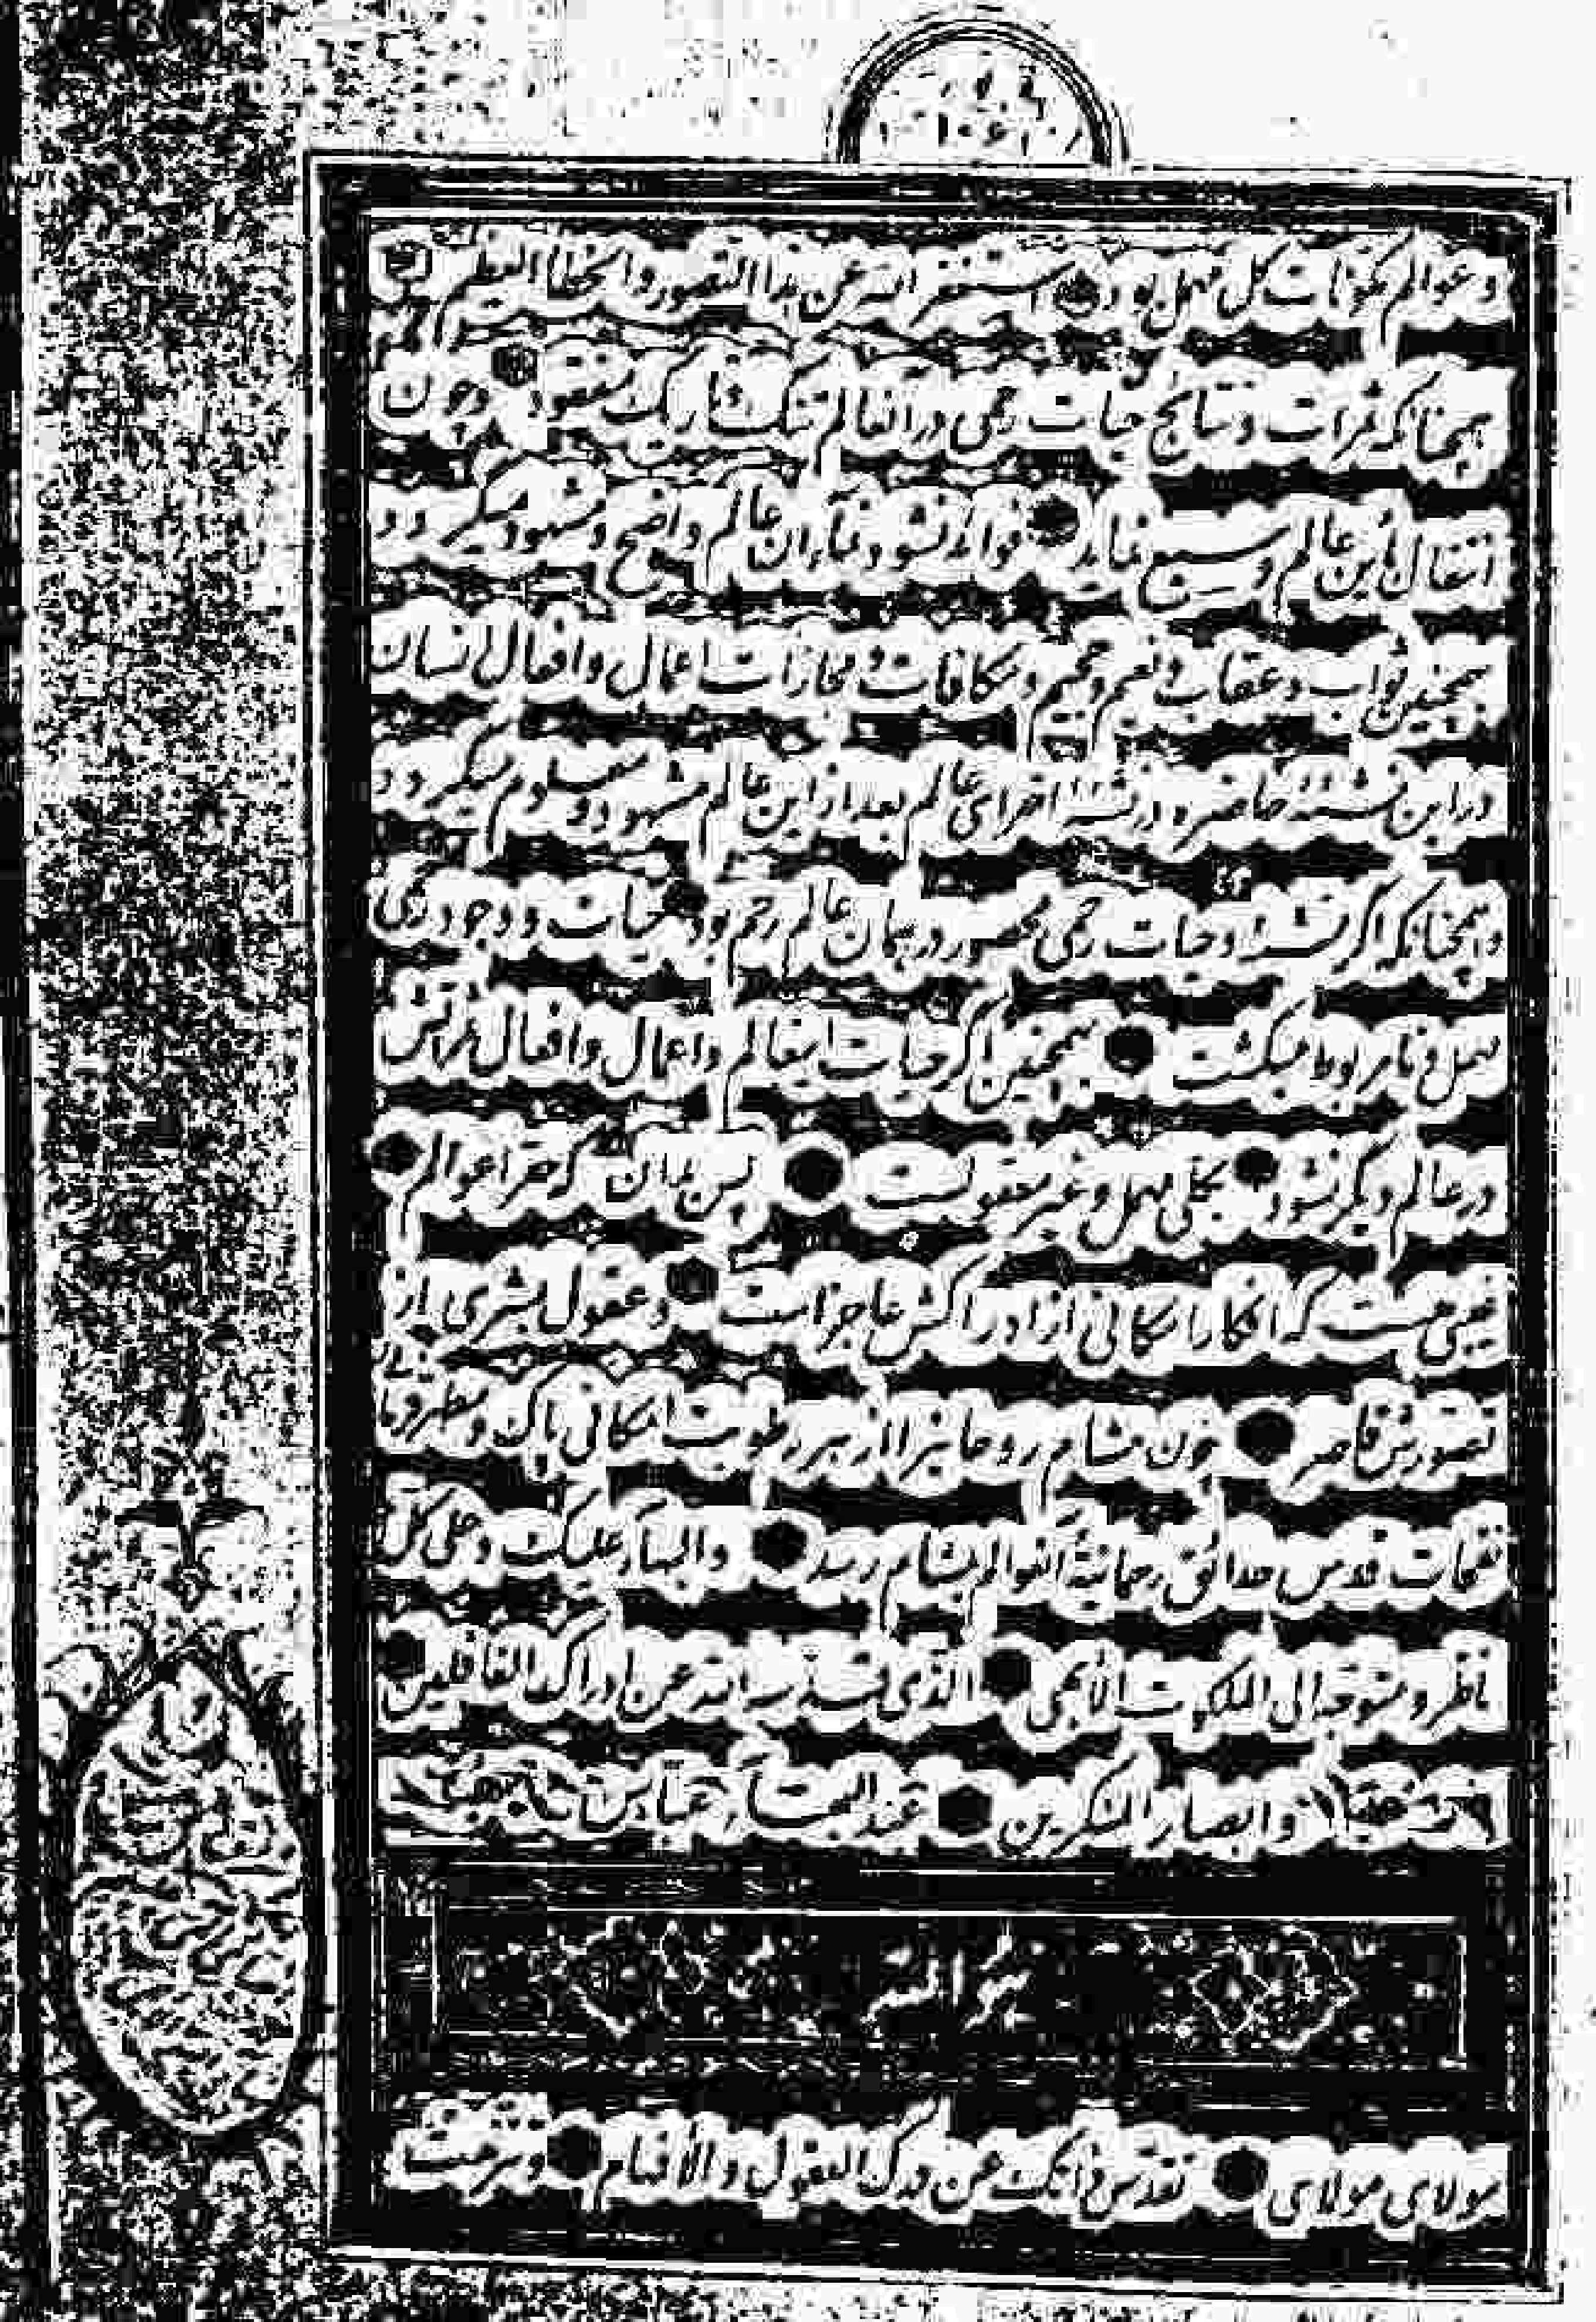 و عوالم مکونات کل مهمل بود استغفر الله عن هذا التصور و الخطاء العظیم
همچنانکه ثمرات و نتایج حیات رحمی در آن عالم تنگ و تاریک مفقود و چون
انتقال باین عالم وسیع نماید فوائد نشو و نمای آن عالم واضح و مشهود میگردد
همچنین ثواب و عقاب و نعیم و جحیم و مکافات و مجازات اعمال و افعال انسان
در این نشئه حاضره در نشئه اخرای عالم بعد از این عالم مشهود و معلوم میگردد
و همچنانکه اگر نشئه و حیات رحمی محصور در همان عالم رحم بود حیات و وجود رحمی
مهمل و نامربوط میگشت همچنین اگر حیات اینعالم و اعمال و افعال و ثمراتش
در عالم دیگر نشود بکلی مهمل و غیر معقولست پس بدان که حق را عوالم
غیبی هست که افکار امکانی از ادراکش عاجز است و عقول بشری از
تصورش قاصر چون مشام روحانیرا از هر رطوبت امکانی پاک و مطهر فرما
نفحات قدس حدائق رحمانیه آنعوالم بمشام رسد و البهاء علیک و علی کل
ناظر و متوجه الی الملکوت الابهی الذی قدسه الله عن ادراک الغافلین
و ابصار المنکرین عبدالبهاء عباس
هو الابهی
مولای مولای تقدس ذاتک عن درک العقول و الافهام